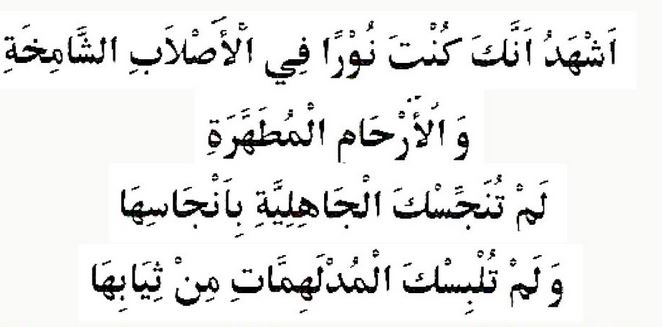 اَشْهَدُ اَنَّكَ كُنْتَ نُوْرًا فِي الْأَصْلَابِ الشَّامِخَةِ
وَ الْأَرْحَامِ الْمُطَهَّرَةِ
لَمْ تُنَجِّسْكَ الْجَاهِلِيَّةِ بِاَنْجَاسِهَا
وَ لَمْ تُلْبِسْكَ الْمُدْلَهِمَّاتِ مِنْ ثِيَابِهَا